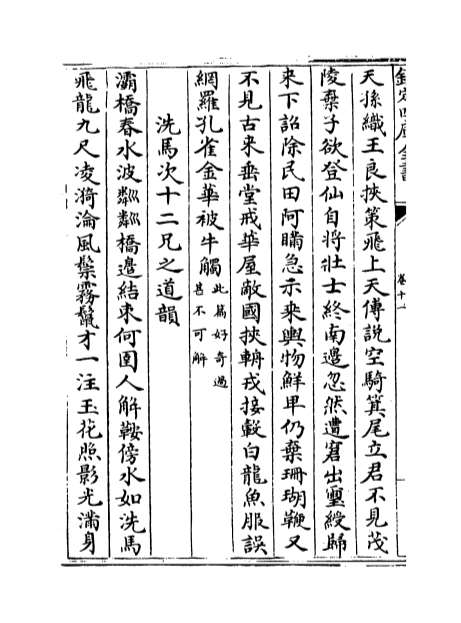 欽定四庫全書
卷十一
天孫織王良挾策飛上天傳說空騎箕尾立君不見茂
陵棄子欲登仙自將壯士終南邊忽然遭窘出璽綬歸
來下詔除民田阿瞞急示乘輿物鮮卑仍棄珊瑚鞭又
不見古來垂堂戒華屋敵國挾輈戎接轂白龍魚服誤
網羅孔雀金華被牛觸此篇好奇過甚不可解
洗馬次十二兄之道韻
灞橋春水波粼粼橋邊結束何圉人解鞍傍水如洗馬
飛龍九尺凌漪淪風鬃霧鬣才一注玉花照影光滿身